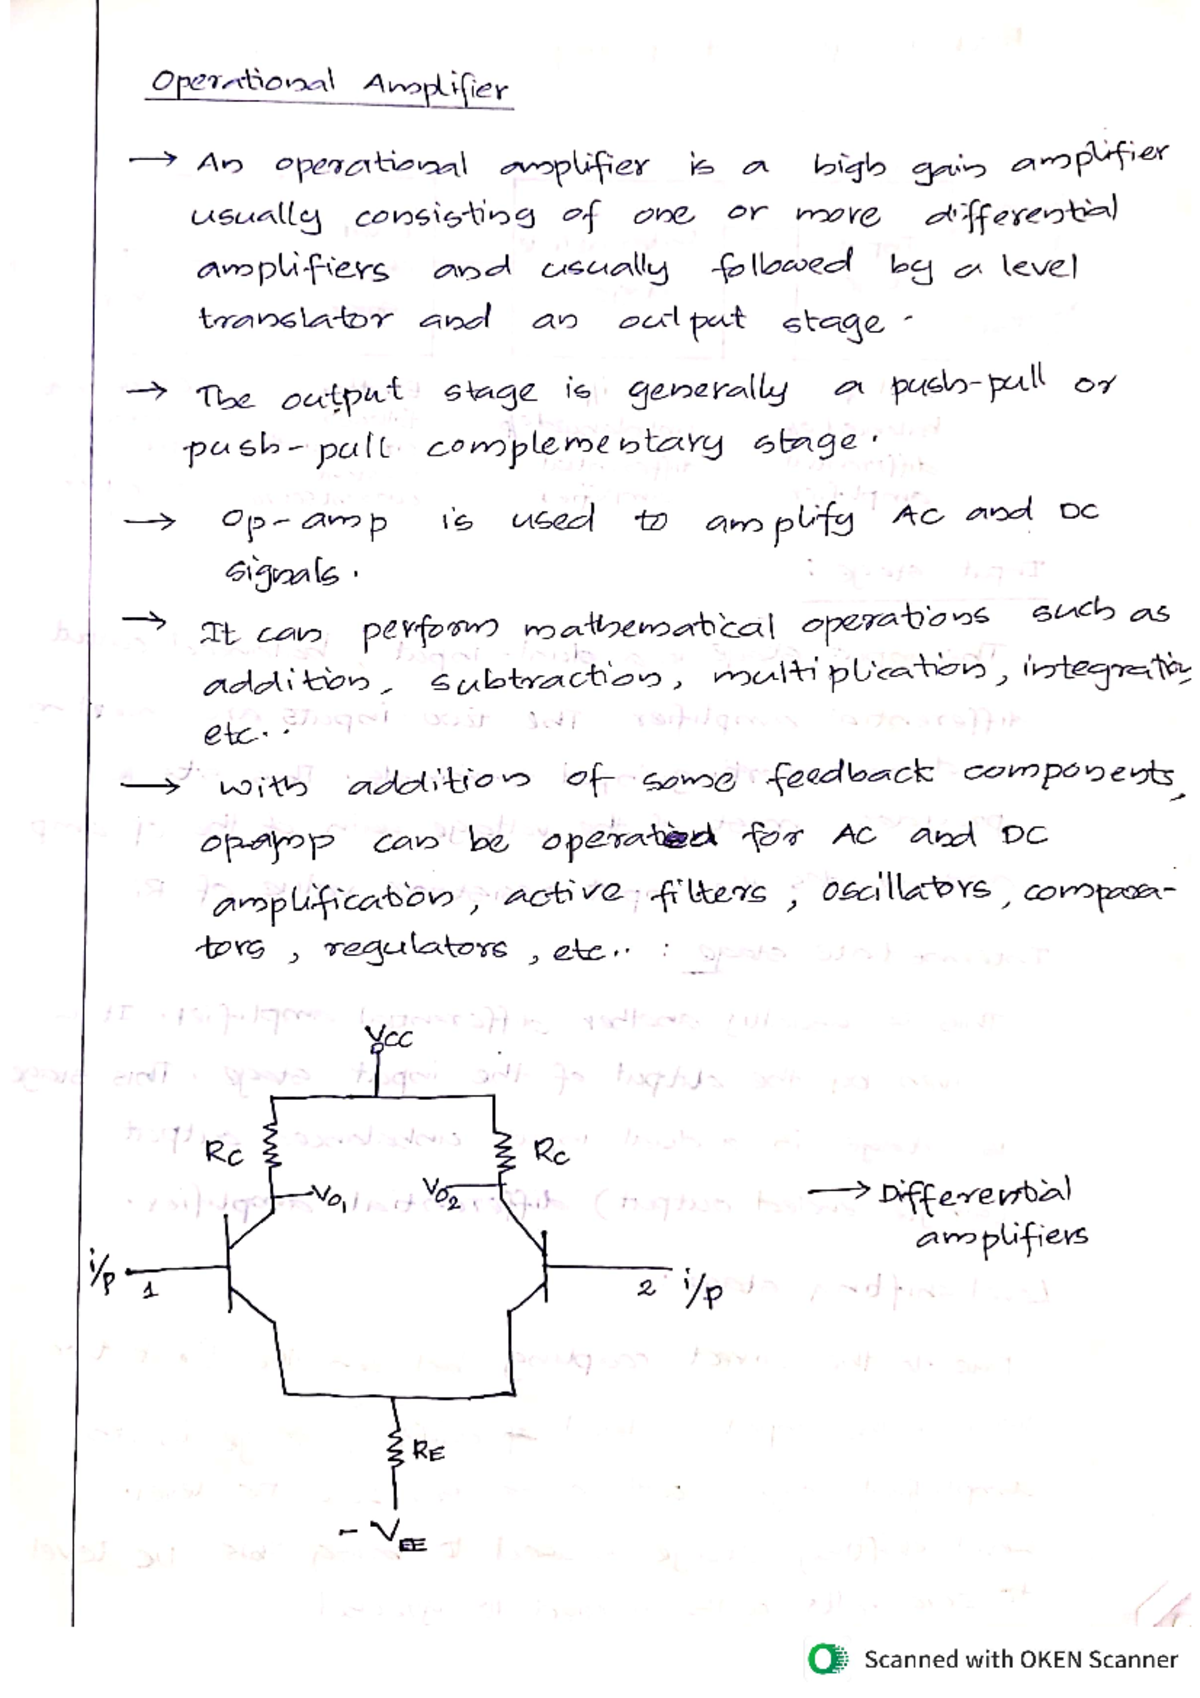 Operational Amplifier
→ An operational amplifier is a high gain amplifier
usually consisting of one or more differential
amplifiers and usually followed by a level
translator and an output stage.
→ The output stage is generally a push-pull or
push-pull complementary stage.
→ Op-amp is used to amplify AC and DC
signals.
→ It can perform mathematical operations such as
addition, subtraction, multiplication, integration
etc..
→ with addition of some feedback components,
opamp can be operated for AC and DC
amplification, active filters, oscillators, compara-
tors, regulators, etc..
VCC
RC RC
VO1 VO2
→ Differential
amplifiers
i/p 1 2 i/p
RE
- VEE
Scanned with OKEN Scanner